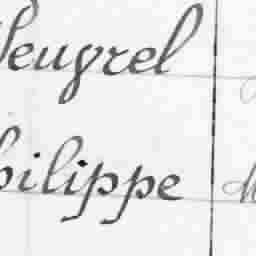 Veugrel
Philippe